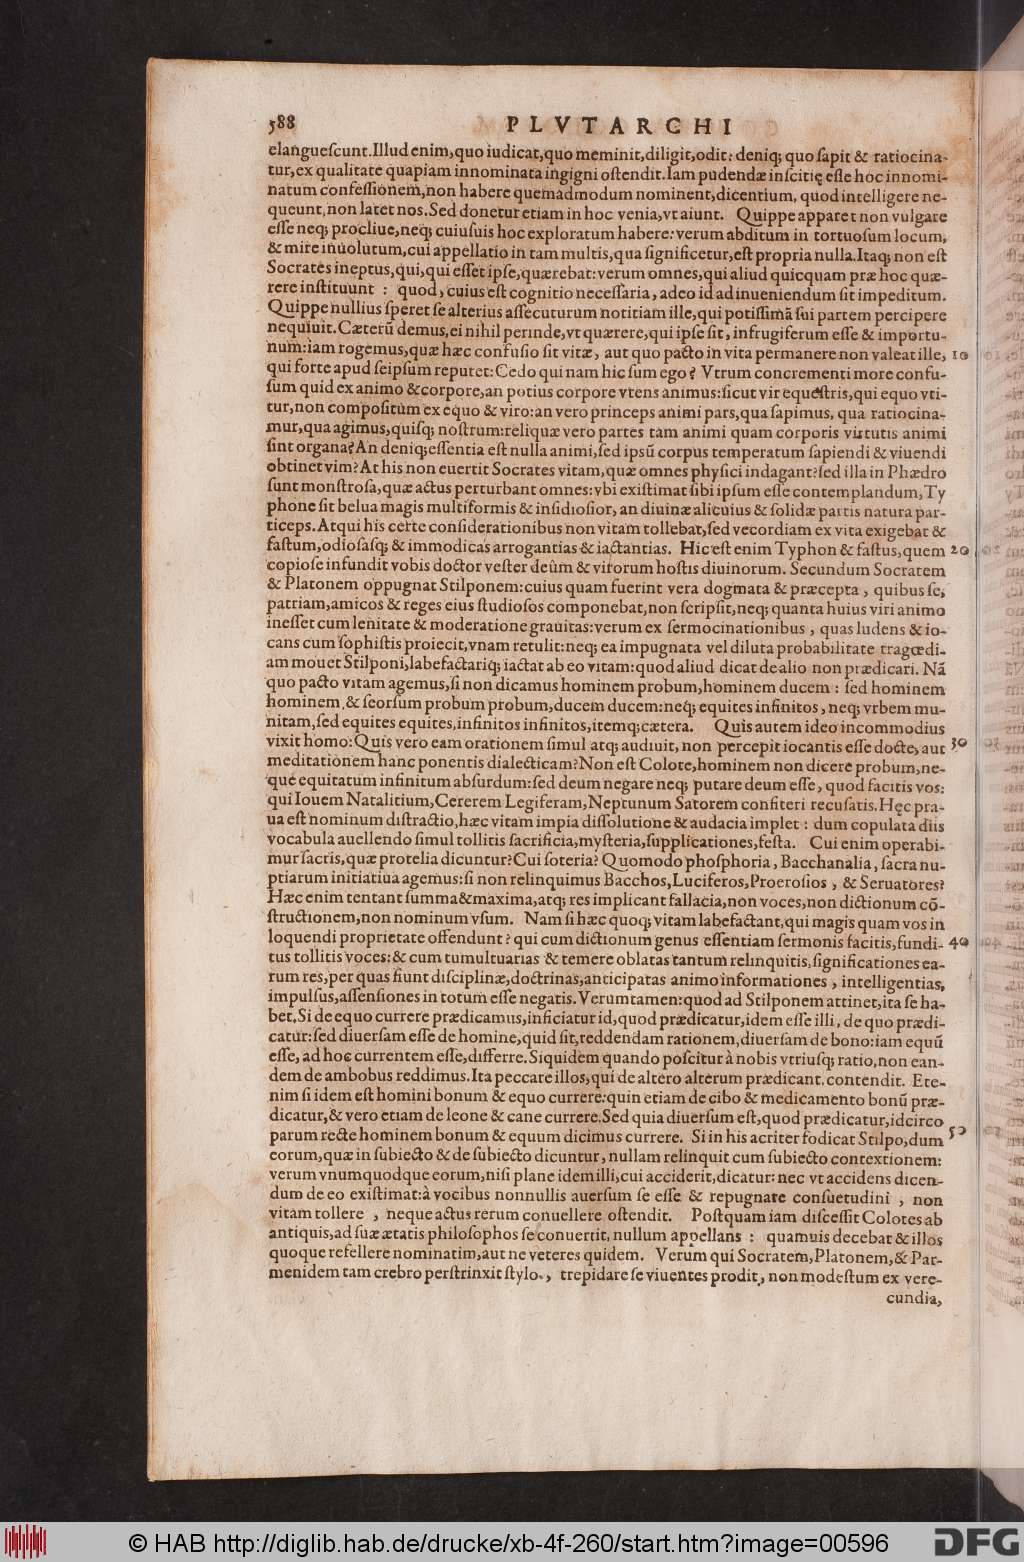 588
PLVTARCHI
elanguescunt. Illud enim, quo iudicat, quo meminit, diligit, odit: deniq; quo sapit & ratiocina-
tur, ex qualitate quapiam innominata ingigni ostendit. Iam pudendæ inscitię esse hoc innomi-
natum confessionem, non habere quemadmodum nominent, dicentium, quod intelligere ne-
queunt, non latet nos. Sed donetur etiam in hoc venia, vt aiunt. Quippe apparet non vulgare
esse neq; procliue, neq; cuiusuis hoc exploratum habere: verum abditum in tortuosum locum,
& mire inuolutum, cui appellatio in tam multis, qua significetur, est propria nulla. Itaq; non est
Socrates ineptus, qui, qui esset ipse, quærebat: verum omnes, qui aliud quicquam præ hoc quæ-
rere instituunt : quod, cuius est cognitio necessaria, adeo id ad inueniendum sit impeditum.
Quippe nullius speret se alterius assecuturum notitiam ille, qui potissimã sui partem percipere
nequiuit. Cæterũ demus, ei nihil perinde, vt quærere, qui ipse sit, infrugiferum esse & importu-
num: iam rogemus, quæ hæc confusio sit vitæ, aut quo pacto in vita permanere non valeat ille, 10
qui forte apud seipsum reputet: Cedo qui nam hic sum ego? Vtrum concrementi more confu-
sum quid ex animo & corpore, an potius corpore vtens animus: sicut vir equestris, qui equo vti-
tur, non compositum ex equo & viro: an vero princeps animi pars, qua sapimus, qua ratiocina-
mur, qua agimus, quisq; nostrum: reliquæ vero partes tam animi quam corporis virtutis animi
sint organa? An deniq; essentia est nulla animi, sed ipsũ corpus temperatum sapiendi & viuendi
obtinet vim? At his non euertit Socrates vitam, quæ omnes physici indagant: sed illa in Phædro
sunt monstrosa, quæ actus perturbant omnes: vbi existimat sibi ipsum esse contemplandum, Ty
phone sit belua magis multiformis & insidiosior, an diuinæ alicuius & solidæ partis natura par-
ticeps. Atqui his certe considerationibus non vitam tollebat, sed vecordiam ex vita exigebat &
fastum, odiosasq; & immodicas arrogantias & iactantias. Hic est enim Typhon & fastus, quem 20
copiose infundit vobis doctor vester deûm & virorum hostis diuinorum. Secundum Socratem
& Platonem oppugnat Stilponem: cuius quam fuerint vera dogmata & præcepta, quibus se,
patriam, amicos & reges eius studiosos componebat, non scripsit, neq; quanta huius viri animo
inesset cum lenitate & moderatione grauitas: verum ex sermocinationibus, quas ludens & io-
cans cum sophistis proiecit, vnam retulit: neq; ea impugnata vel diluta probabilitate tragœdi-
am mouet Stilponi, labefactariq; iactat ab eo vitam: quod aliud dicat de alio non prædicari. Nã
quo pacto vitam agemus, si non dicamus hominem probum, hominem ducem : sed hominem
hominem, & seorsum probum probum, ducem ducem: neq; equites infinitos, neq; vrbem mu-
nitam, sed equites equites, infinitos infinitos, itemq; cætera. Quis autem ideo incommodius
vixit homo: Quis vero eam orationem simul atq; audiuit, non percepit iocantis esse docte, aut 30
meditationem hanc ponentis dialecticam? Non est Colote, hominem non dicere probum, ne-
que equitatum infinitum absurdum: sed deum negare neq; putare deum esse, quod facitis vos:
qui Iouem Natalitium, Cererem Legiferam, Neptunum Satorem confiteri recusatis. Hęc pra-
ua est nominum distractio, hæc vitam impia dissolutione & audacia implet : dum copulata diis
vocabula auellendo simul tollitis sacrificia, mysteria, supplicationes, festa. Cui enim operabi-
mur sacris, quæ protelia dicuntur? Cui soteria? Quomodo phosphoria, Bacchanalia, sacra nu-
ptiarum initiatiua agemus: si non relinquimus Bacchos, Luciferos, Proerosios, & Seruatores?
Hæc enim tentant summa & maxima, atq; res implicant fallacia, non voces, non dictionum cõ-
structionem, non nominum vsum. Nam si hæc quoq; vitam labefactant, qui magis quam vos in
loquendi proprietate offendunt? qui cum dictionum genus essentiam sermonis facitis, fundi- 40
tus tollitis voces: & cum tumultuarias & temere oblatas tantum relinquitis, significationes ea-
rum res, per quas fiunt disciplinæ, doctrinas, anticipatas animo informationes, intelligentias,
impulsus, assensiones in totum esse negatis. Verumtamen: quod ad Stilponem attinet, ita se ha-
bet. Si de equo currere prædicamus, inficiatur id, quod prædicatur, idem esse illi, de quo prædi-
catur: sed diuersam esse de homine, quid sit, reddendam rationem, diuersam de bono: iam equũ
esse, ad hoc currentem esse, differre. Siquidem quando poscitur à nobis vtriusq; ratio, non ean-
dem de ambobus reddimus. Ita peccare illos, qui de altero alterum prædicant, contendit. Ete-
nim si idem est homini bonum & equo currere: quin etiam de cibo & medicamento bonũ præ-
dicatur, & vero etiam de leone & cane currere. Sed quia diuersum est, quod prædicatur, idcirco
parum recte hominem bonum & equum dicimus currere. Si in his acriter fodicat Stilpo, dum 50
eorum, quæ in subiecto & de subiecto dicuntur, nullam relinquit cum subiecto contextionem:
verum vnumquodque eorum, nisi plane idem illi, cui acciderit, dicatur: nec vt accidens dicen-
dum de eo existimat: à vocibus nonnullis auersum se esse & repugnare consuetudini, non
vitam tollere, neque actus rerum conuellere ostendit. Postquam iam discessit Colotes ab
antiquis, ad suæ ætatis philosophos se conuertit, nullum appellans : quamuis decebat & illos
quoque refellere nominatim, aut ne veteres quidem. Verum qui Socratem, Platonem, & Par-
menidem tam crebro perstrinxit stylo, trepidare se viuentes prodit, non modestum ex vere-
cundia,
© HAB http://diglib.hab.de/drucke/xb-4f-260/start.htm?image=00596
DFG